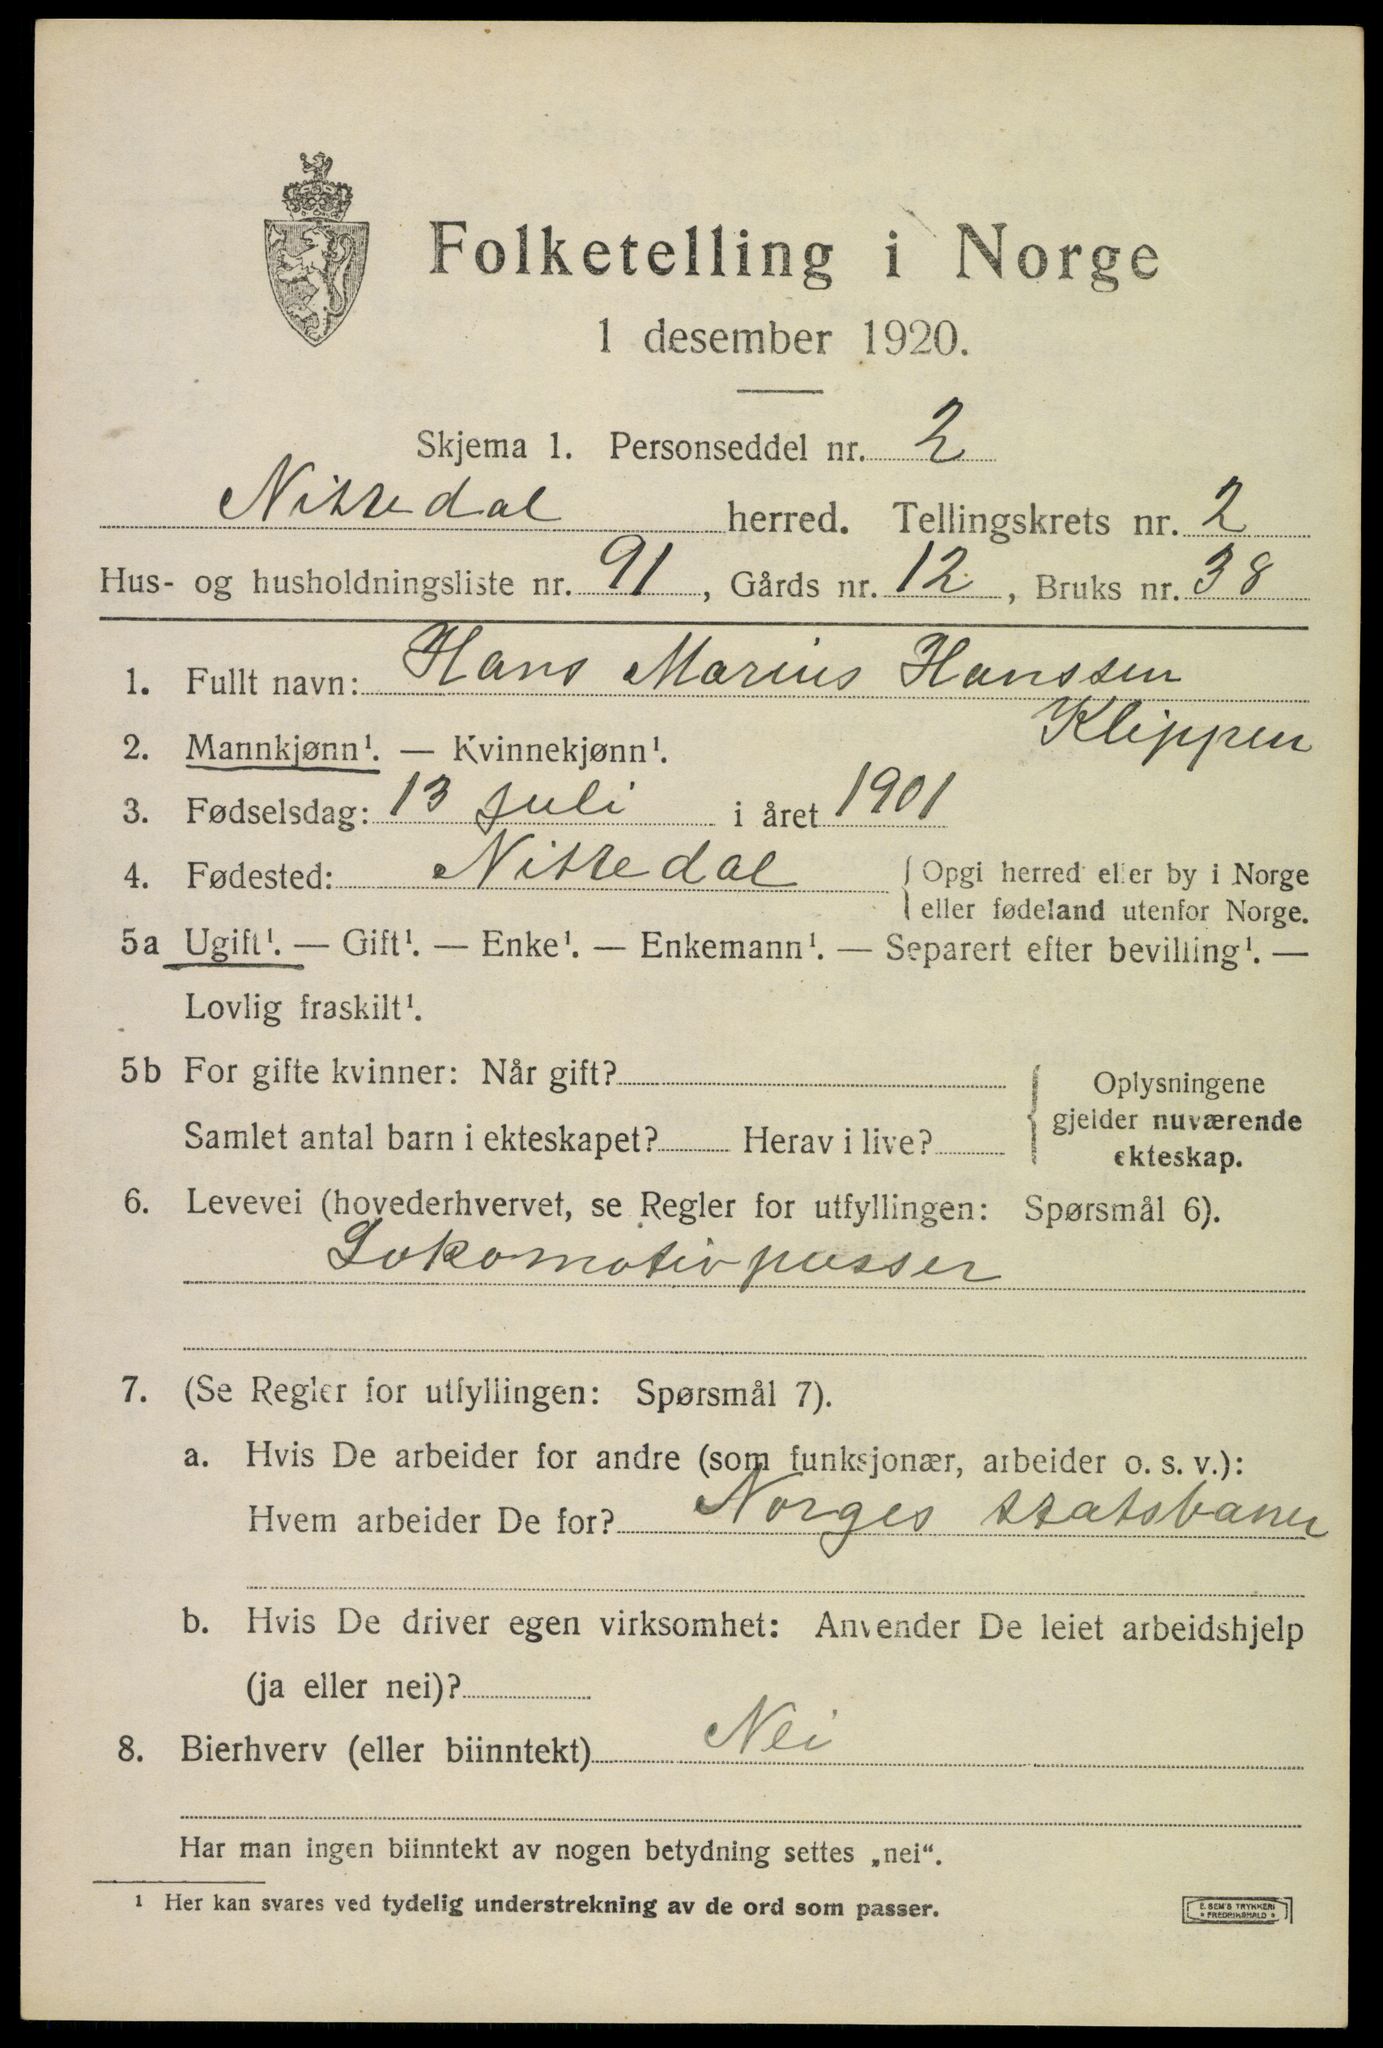 Folketelling i Norge
1 desember 1920.
Skjema 1. Personseddel nr. 2
Nittedal herred. Tellingskrets nr. 2
Hus- og husholdningsliste nr. 91, Gårds nr. 12, Bruks nr. 38
1. Fullt navn: Hans Marius Hanssen
Klippen
2. Mannkjønn¹. — Kvinnekjønn¹.
3. Fødselsdag: 13 juli i året 1901
4. Fødested: Nittedal { Opgi herred eller by i Norge
eller fødeland utenfor Norge.
5a Ugift¹. — Gift¹. — Enke¹. — Enkemann¹. — Separert efter bevilling¹. —
Lovlig fraskilt¹.
5b For gifte kvinner: Når gift?
Samlet antal barn i ekteskapet? Herav i live?
{ Oplysningene
gjelder nuværende
ekteskap.
6. Levevei (hovederhvervet, se Regler for utfyllingen: Spørsmål 6).
Lokomotivpusser
7. (Se Regler for utfyllingen: Spørsmål 7).
a. Hvis De arbeider for andre (som funksjonær, arbeider o. s. v.):
Hvem arbeider De for? Norges statsbaner
b. Hvis De driver egen virksomhet: Anvender De leiet arbeidshjelp
(ja eller nei)?
8. Bierhverv (eller biinntekt) Nei
Har man ingen biinntekt av nogen betydning settes „nei“.
¹ Her kan svares ved tydelig understrekning av de ord som passer.
E. SEM'S TRYKKERI
* FREDRIKSHALD *